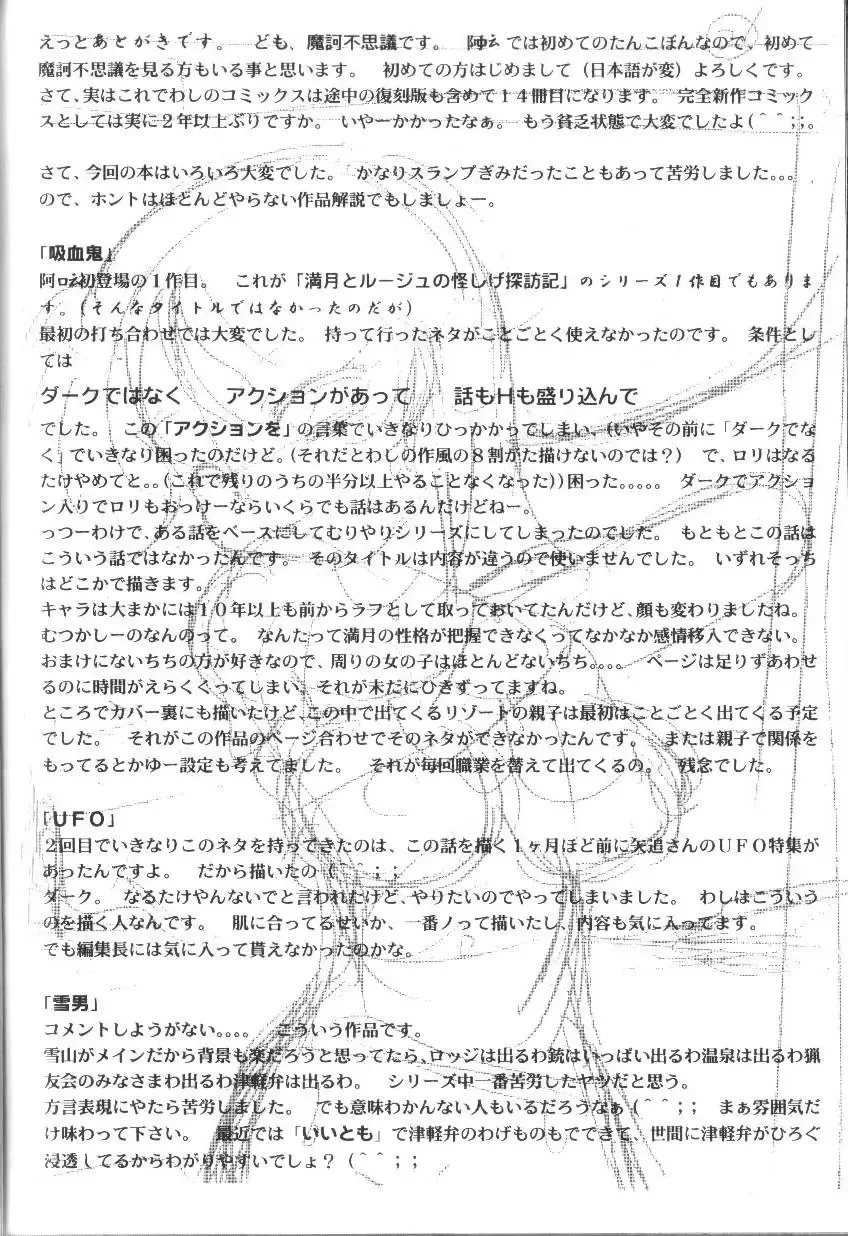 えっとあとがきです。 ども、魔訶不思議です。 では初めてのたんこぼんなので、初めて
魔訶不思議を見る方もいる事と思います。 初めての方はじめまして（日本語が変）よろしくです。
さて、実はこれでわしのコミックスは途中の復刻版も含めて１４冊目になります。 完全新作コミック
スとしては実に２年以上ぶりですか。 いやーかかったなぁ。 もう貧乏状態で大変でしたよ(＾＾;;。
さて、今回の本はいろいろ大変でした。 かなりスランプぎみだったこともあって苦労しました。。。
ので、ホントはほとんどやらない作品解説でもしましょー。
「吸血鬼」
初登場の１作目。 これが「満月とルージュの怪しげ探訪記」のシリーズ１作目でもありま
す。(そんなタイトルではなかったのだが)
最初の打ち合わせでは大変でした。 持って行ったネタがことごとく使えなかったのです。 条件とし
ては
ダークではなく アクションがあって 話もＨも盛り込んで
でした。 この「アクションを」の言葉でいきなりひっかかってしまい、(いやその前に「ダークでな
く」でいきなり困ったのだけど。(それだとわしの作風の８割がた描けないのでは？) で、ロリはなる
たけやめてと。。(これで残りのうちの半分以上やることなくなった))困った。。。。。 ダークでアクショ
ン入りでロリもおっけーならいくらでも話はあるんだけどねー。
っつーわけで、ある話をベースにしてむりやりシリーズにしてしまったのでした。 もともとこの話は
こういう話ではなかったんです。 そのタイトルは内容が違うので使いませんでした。 いずれそっち
はどこかで描きます。
キャラは大まかには１０年以上も前からラフとして取っておいてたんだけど、顔も変わりましたね。
むつかしーのなんのって。 なんたって満月の性格が把握できなくってなかなか感情移入できない。
おまけにないちちの方が好きなので、周りの女の子はほとんどないちち。。。。 ページは足りずあわせ
るのに時間がえらくくってしまい、それが未だにひきずってますね。
ところでカバー裏にも描いたけど、この中で出てくるリゾートの親子は最初はことごとく出てくる予定
でした。 それがこの作品のページ合わせでそのネタができなかったんです。 または親子で関係を
もってるとかゆー設定も考えてました。 それが毎回職業を替えて出てくるの。 残念でした。
「ＵＦＯ」
２回目でいきなりこのネタを持ってきたのは、この話を描く１ヶ月ほど前に矢追さんのＵＦＯ特集が
あったんですよ。 だから描いたの(＾＾;;
ダーク。 なるたけやんないでと言われたけど、やりたいのでやってしまいました。 わしはこういう
のを描く人なんです。 肌に合ってるせいか、一番ノって描いたし、内容も気に入ってます。
でも編集長には気に入って貰えなかったのかな。
「雪男」
コメントしようがない。。。。 こういう作品です。
雪山がメインだから背景も楽だろうと思ってたら、ロッジは出るわ銃はいっぱい出るわ温泉は出るわ猟
友会のみなさまわ出るわ津軽弁は出るわ。 シリーズ中一番苦労したヤツだと思う。
方言表現にやたら苦労しました。 でも意味わかんない人もいるだろうなぁ(＾＾;; まぁ雰囲気だ
け味わって下さい。 最近では「いいとも」で津軽弁のわげものもでてきて、世間に津軽弁がひろぐ
浸透してるからわがりやすいでしょ？(＾＾;;